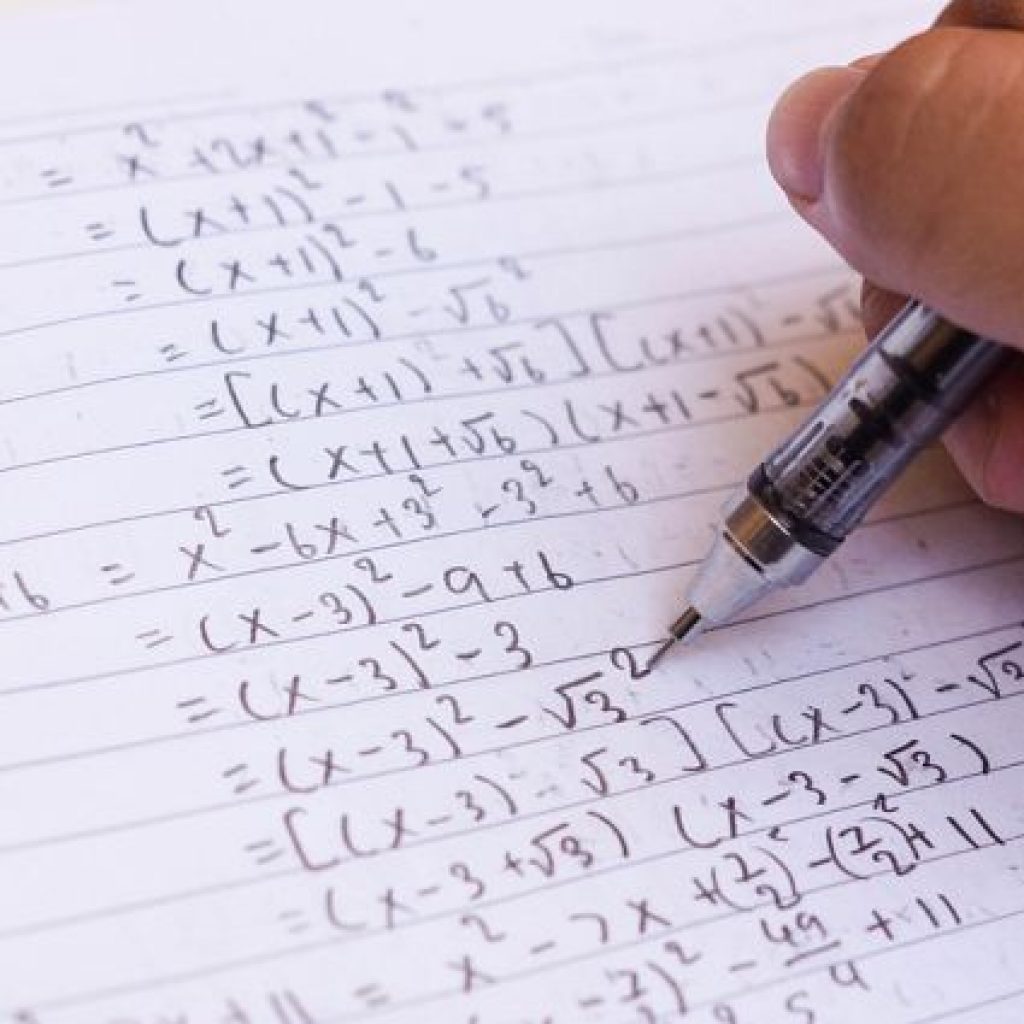 = x² + 2x + 1² - 1² - 5
= (x+1)² - 1 - 5
= (x+1)² - 6
= (x+1)² - √6²
= [(x+1) + √6] [(x+1) - √6
= (x+1+√6)(x+1-√6)
+6 = x² - 6x + 3² - 3² + 6
= (x-3)² - 9 + 6
= (x-3)² - 3
= (x-3)² - √3²
= [(x-3) - √3] [(x-3) - √3
= (x-3+√3) (x-3-√3)
x + 11 = x² - 7x + (7/2)² - (7/2)² + 11
- 7/2)² - 49/4 + 11